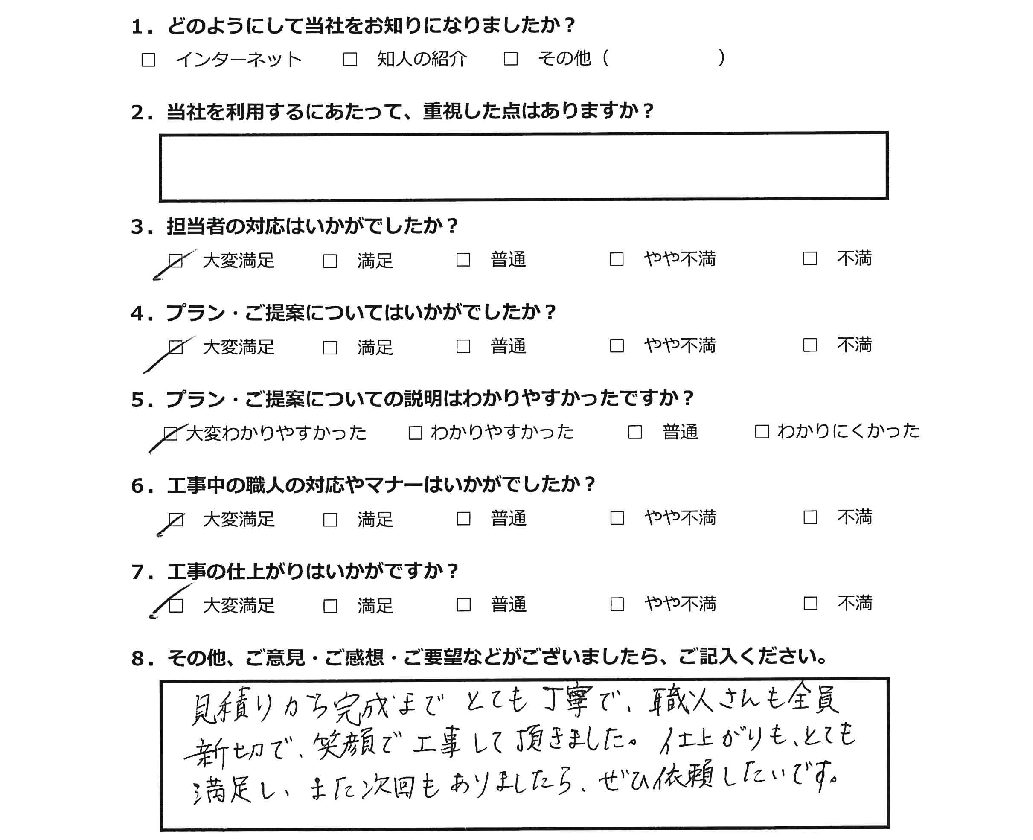 1．どのようにして当社をお知りになりましたか？
□ インターネット □ 知人の紹介 □ その他（ ）
2．当社を利用するにあたって、重視した点はありますか？
3．担当者の対応はいかがでしたか？
☑ 大変満足 □ 満足 □ 普通 □ やや不満 □ 不満
4．プラン・ご提案についてはいかがでしたか？
☑ 大変満足 □ 満足 □ 普通 □ やや不満 □ 不満
5．プラン・ご提案についての説明はわかりやすかったですか？
☑ 大変わかりやすかった □ わかりやすかった □ 普通 □ わかりにくかった
6．工事中の職人の対応やマナーはいかがでしたか？
☑ 大変満足 □ 満足 □ 普通 □ やや不満 □ 不満
7．工事の仕上がりはいかがですか？
☑ 大変満足 □ 満足 □ 普通 □ やや不満 □ 不満
8．その他、ご意見・ご感想・ご要望などがございましたら、ご記入ください。
見積りから完成まで とても 丁寧で、職人さんも全員
新切で、笑顔で工事して頂きました。仕上がりも、とても
満足し、また次回もありましたら、ぜひ依頼したいです。